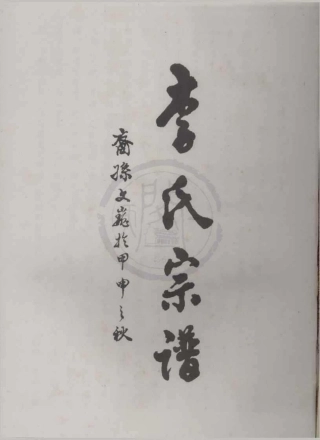 李氏宗谱
裔孫文巍於甲申之秋